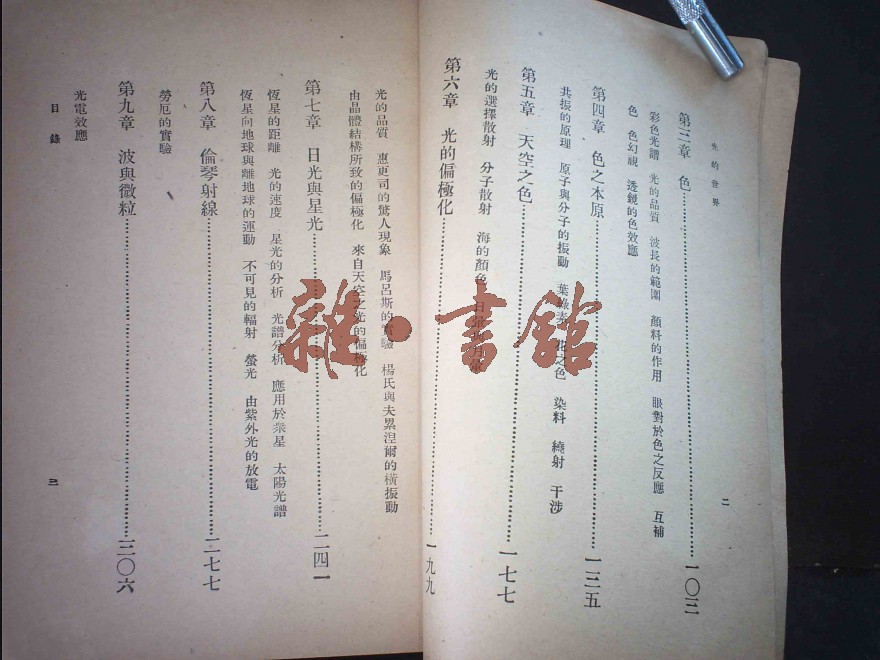 光的世界
第三章 色……一〇三
彩色光譜 光的品質 波長的範圍 顏料的作用 眼對於色之反應 互補
色 色幻視 透鏡的色效應
第四章 色之本原……一三五
共振的原理 原子與分子的振動 葉綠素 花之色 染料 繞射 干涉
第五章 天空之色……一七七
光的選擇散射 分子散射 海的顏色
第六章 光的偏極化……一九九
二
光的品質 惠更司的驚人現象 馬呂斯的實驗 楊氏與夫累涅爾的橫振動
由晶體結構所致的偏極化 來自天空之光的偏極化
第七章 日光與星光……二四一
恆星的距離 光的速度 星光的分析 光譜分析 應用於衆星 太陽光譜
恆星向地球與離地球的運動 不可見的輻射 螢光 由紫外光的放電
第八章 倫琴射線……二七七
勞厄的實驗
第九章 波與微粒……三〇六
光電效應
目錄
三
雜·書館